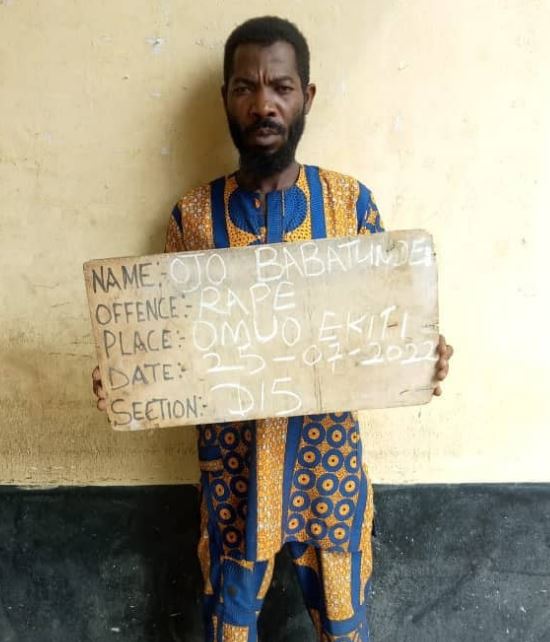 NAME:- OJO BABATUNDE
OFFENCE:- RAPE
PLACE:- OMUO EKITI
DATE:- 25-07-2022
SECTION:- D15